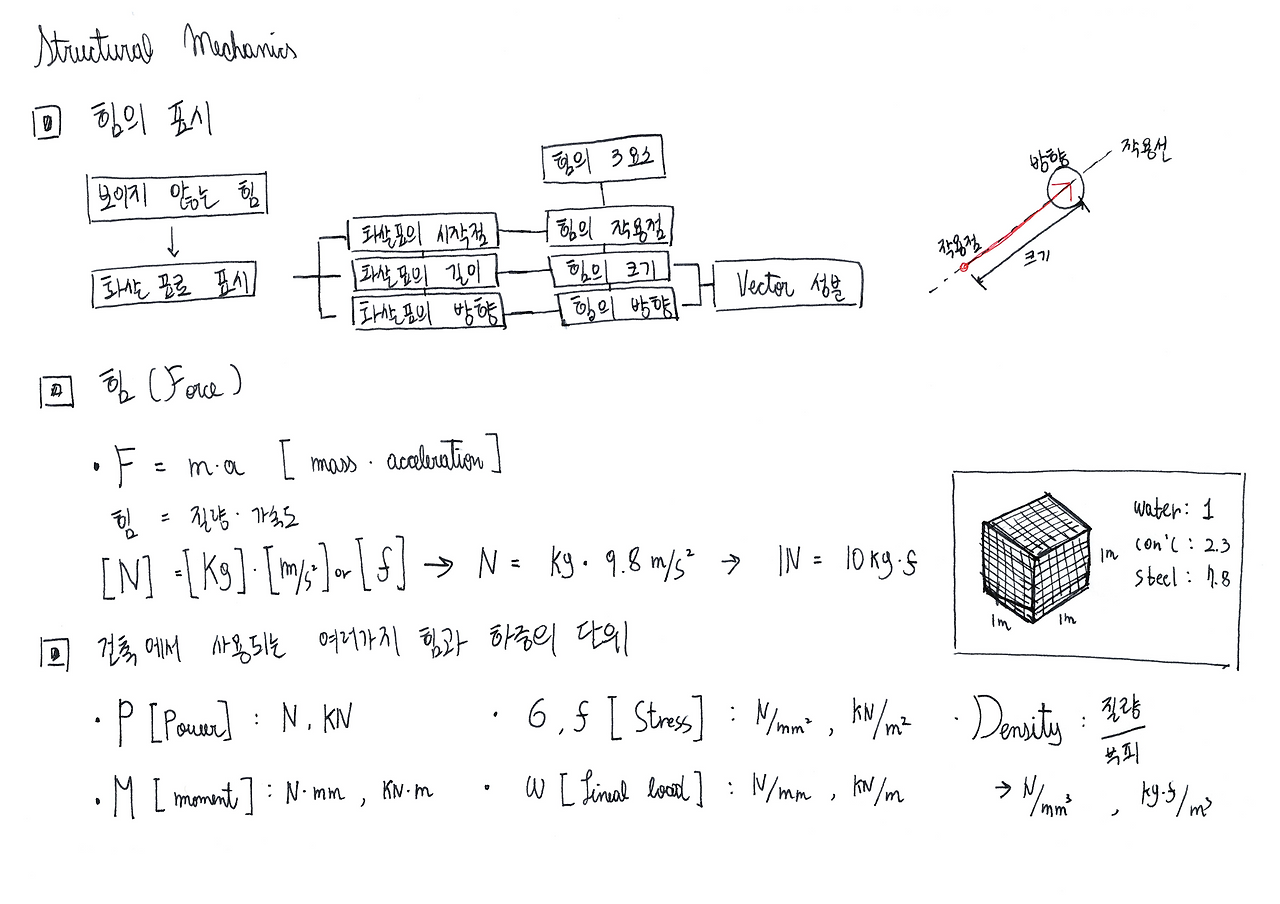 Structural Mechanics
힘의 표시
보이지 않는 힘
↓
화살표로 표시
힘의 3요소
화살표의 시작점 힘의 작용점
화살표의 길이 힘의 크기
화살표의 방향 힘의 방향
Vector 성분
방향 작용선
작용점
크기
힘 (Force)
• F = m·a [ mass · acceleration ]
힘 = 질량 · 가속도
[N] = [Kg] · [m/s²] or [f] → N = kg · 9.8 m/s² → 1N = 10kg·f
water: 1
con'c : 2.3
steel : 7.8
1m
1m 1m
건축에서 사용되는 여러가지 힘과 하중의 단위
• P [Power] : N, KN
• 6, f [ Stress ] : N/mm², kN/m²
• Density : 질량/부피
• M [ moment ] : N·mm, KN·m
• W [ Lineal load ] : N/mm, kN/m
→ N/mm³, kg·f/m³